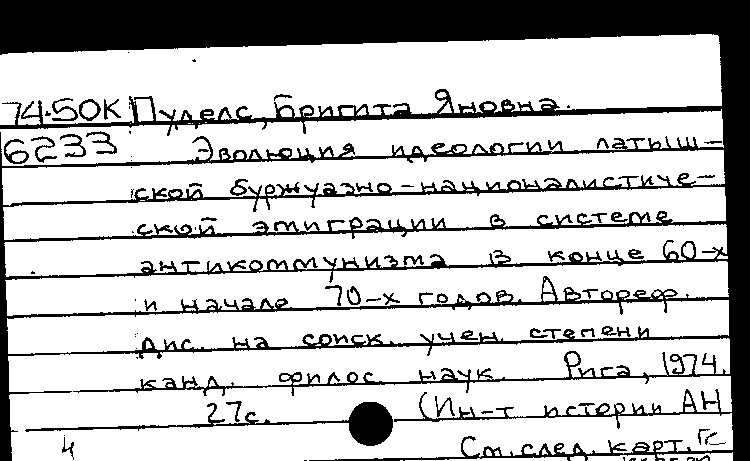 74-50К Пуделс, Бригита Яновна.
6233 Эволюция идеологии латыш-
ской буржуазно-националистиче-
ской эмиграции в системе
антикоммунизма в конце 60-х
и начале 70-х годов. Автореф.
дис. на соиск. учен. степени
канд. филос. наук. Рига, 1974.
27с. (Ин-т истории АН
4 См. след. карт.